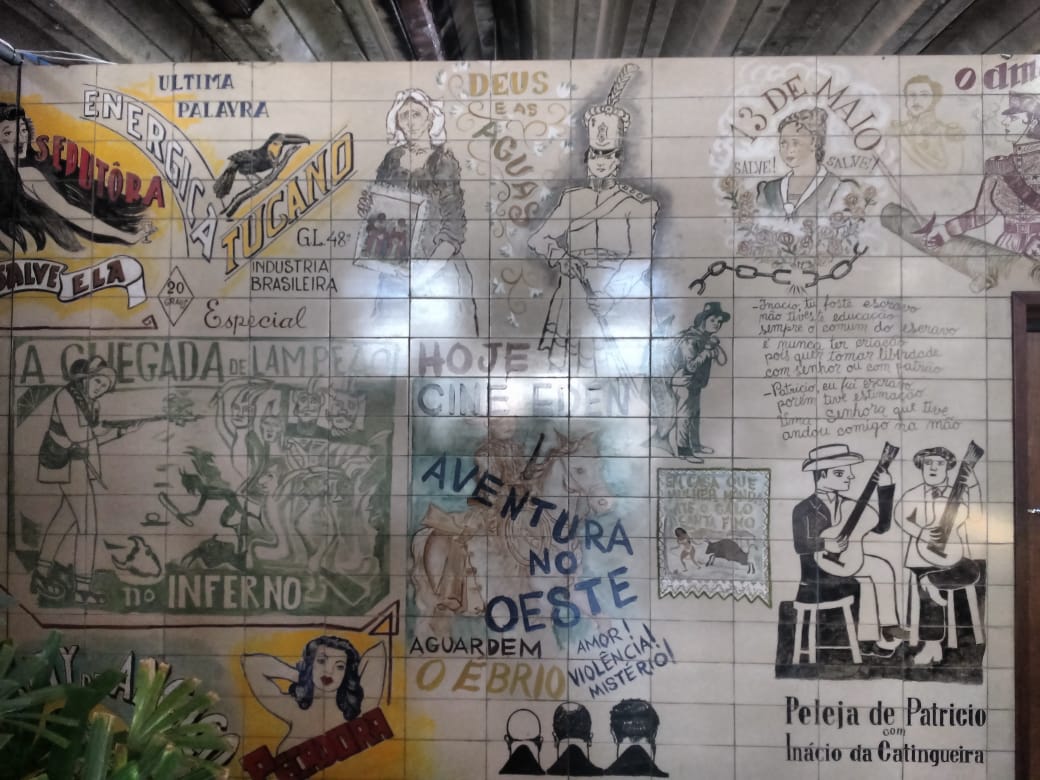 ULTIMA
PALAVRA
ENERGICA
SEDUTÔRA
TUCANO
G.L. 48º
INDUSTRIA
BRASILEIRA
SALVE ELA
20
GRAUS
Especial
DEUS
E AS
AGUAS
13 DE MAIO
SALVE! SALVE!
- Inacio, tu foste escravo
não tiveste educação
sempre o comum do escravo
é nunca ter criação
pois quer tomar liberdade
com senhor ou com patrão
- Patricio, eu fui escravo
porém tive estimação
uma Senhora que tive
andou comigo na mão
A CHEGADA DE LAMPEZÃO
no INFERNO
HOJE
CINE EDEN
AVENTURA
NO
OESTE
AGUARDEM
O ÉBRIO
AMOR!
VIOLÊNCIA!
MISTÉRIO!
EM CASA QUE
MULHER MANDA
ATÉ O GALO
CANTA FINO
Peleja de Patricio
com
Inácio da Catingueira